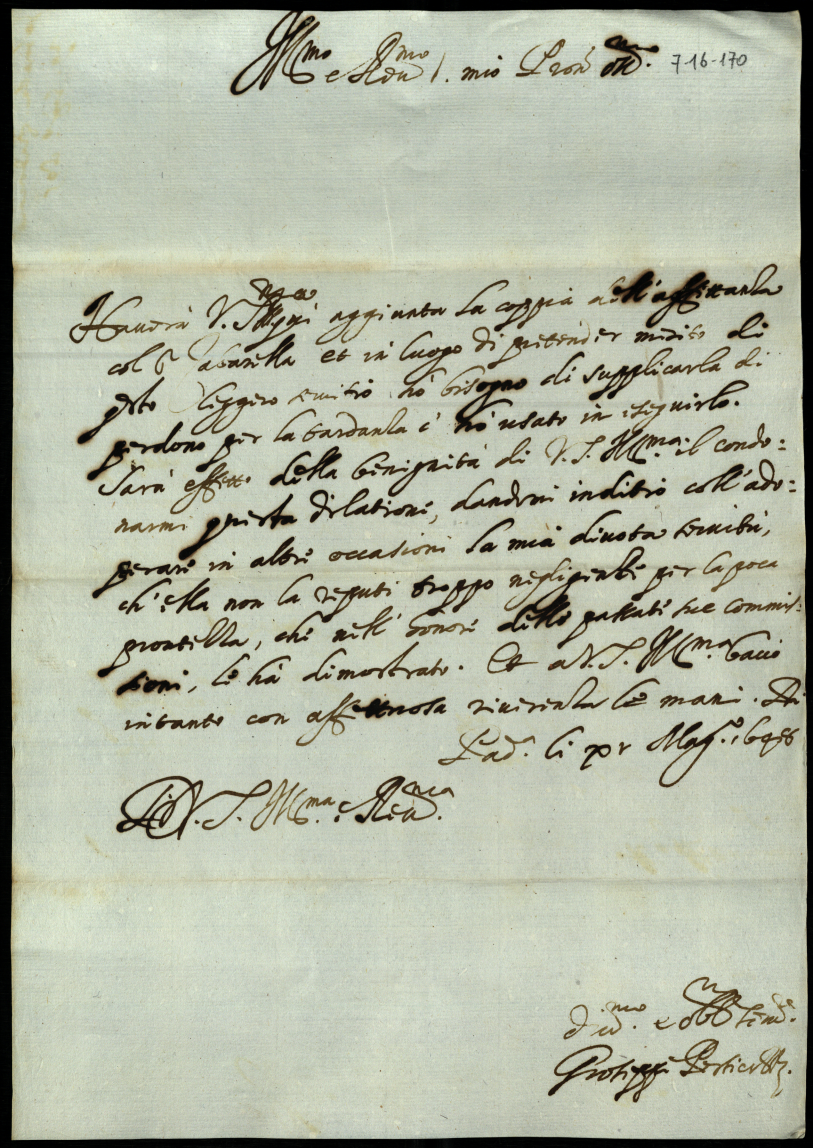 Ill.mo e Reu.mo S. mio Pron Oss.mo 7-16-170
Hauerà V. S. Ill.ma qui aggiunta la coppia dell'affittanza
col S.r Zabarella et in luogo di pretender merito di
q.sto leggero seruitio hò bisogno di supplicarla di
perdono per la tardanza c' hò usato in eseguirlo.
Sarà effetto della benignità di V. S. Ill.ma il condo=
narmi questa dilatione, dandomi inditio coll'ado=
perare in altre occasioni la mia diuota seruitù,
ch'ella non la reputi troppo negligente per la poca
prontezza, che nell' honore delle passate sue commis=
sioni, le hà dimostrato. Et a V. S. Ill.ma bacio
intanto con affettuosa riuerenza le mani. Di
Pad.a li p.r Mag.o
Di V. S. Ill.ma e Reu.ma
Diu.mo e obb.mo Seru.e
Gioseppe